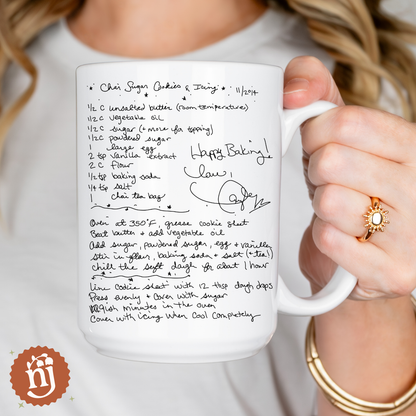 * Chai Sugar Cookies & Icing * 11/2014
1/2 C unsalted butter (room temperature)
1/2 C vegetable oil
1/2 C sugar (+ more for topping)
1/2 C powdered sugar
1 large egg
2 tsp vanilla extract
2 C flour
1/2 tsp baking soda
1/4 tsp salt
1 chai tea bag
Happy Baking!
Love,
Oven at 350°F, grease cookie sheet
Beat butter + add vegetable oil
Add sugar, powdered sugar, egg + vanilla
stir in flour, baking soda + salt (+ tea!)
chill the soft dough for about 1 hour
Line cookie sheet with 12 tbsp dough drops
Press evenly + cover with sugar
minutes in the oven
Cover with icing when cool completely
nj